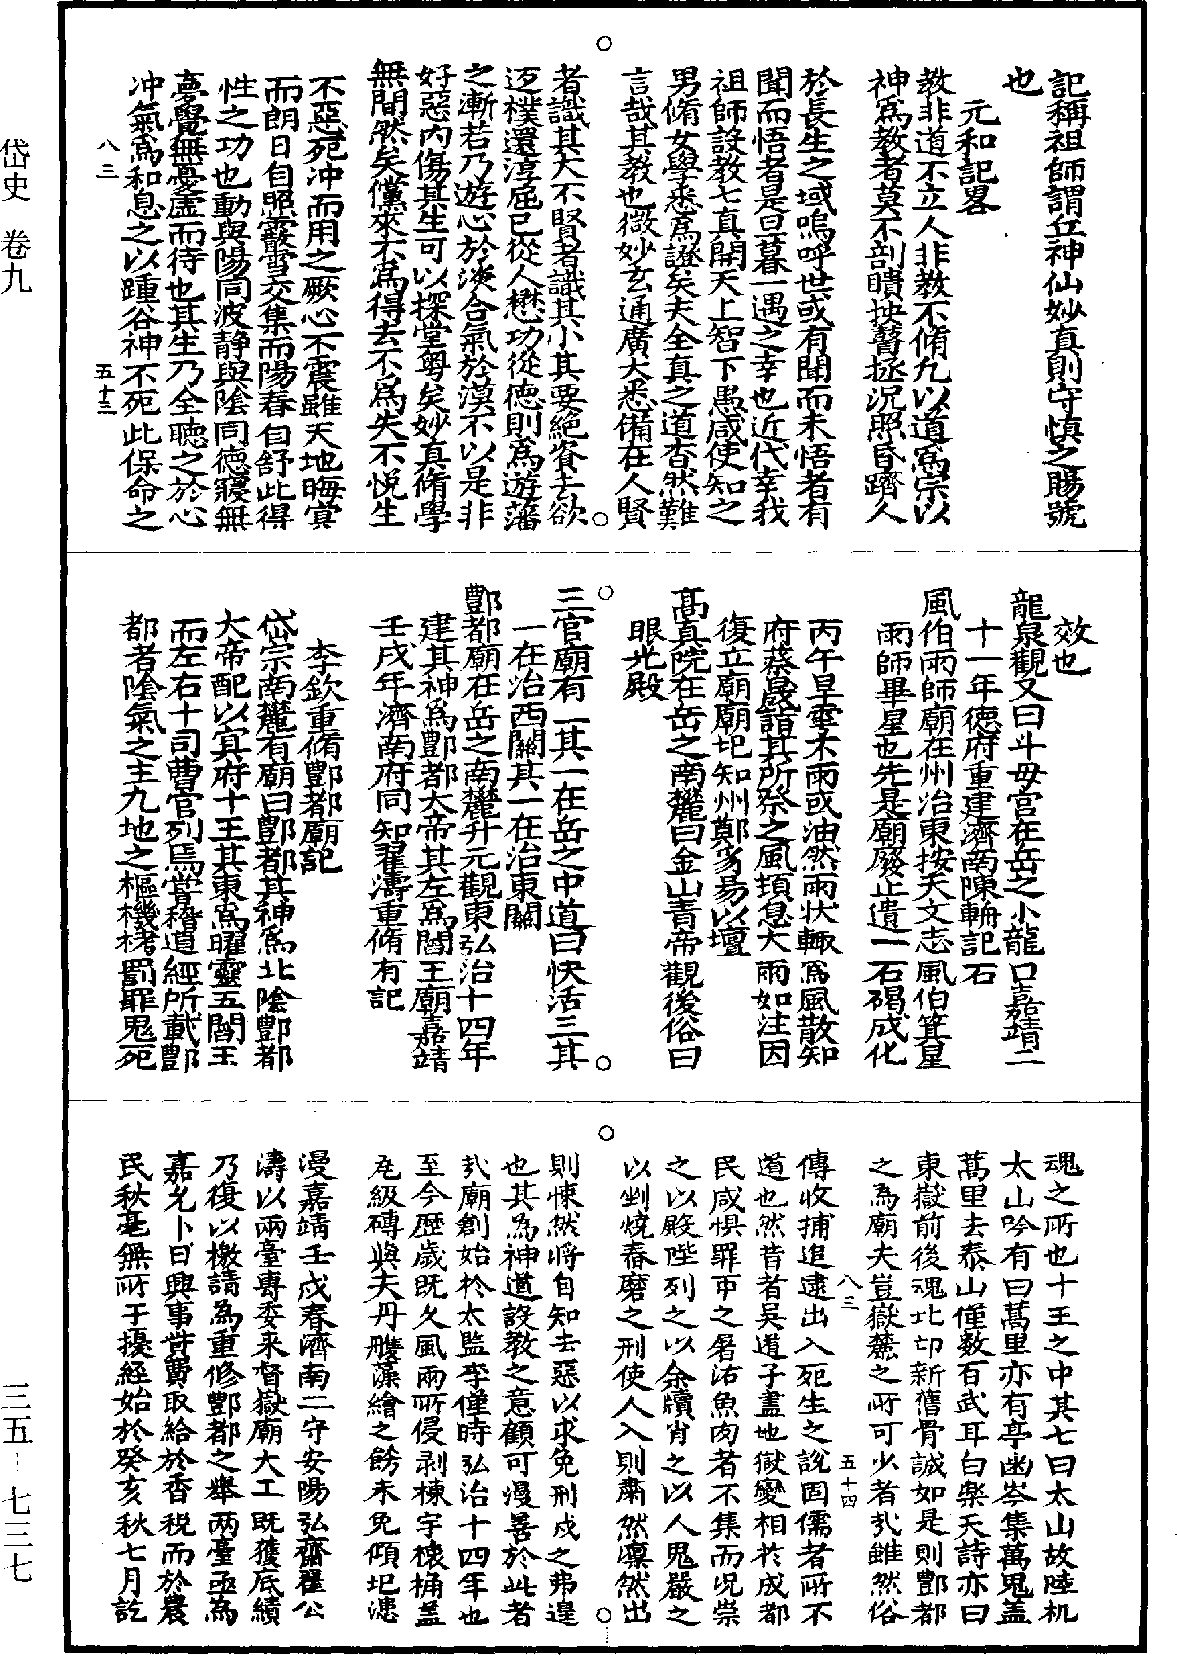 岱史 卷九
三五—七三七
記稱祖師謂丘神仙妙真則守慎之賜號
也
元和記畧
教非道不立人非教不脩九以道為宗以
神為教者莫不剖瞶抉瞽拯況照昏躋人
於長生之域嗚呼世或有聞而未悟者有
聞而悟者是旦暮一遇之幸也近代幸我
祖師設教七真開天上智下愚咸使知之
男脩女學悉為證矣夫全真之道杳然難
言哉其教也微妙玄通廣大悉備在人賢
者識其大不賢者識其小其要絶資去欲
返樸還淳屈已從人懋功從德則為遊藩
之漸若乃遊心於淡合氣於漠不以是非
好惡内傷其生可以探堂奧矣妙真脩學
無間然矣儻來不為得去不為失不悅生
不惡死冲而用之厥心不震雖天地晦冥
而朗日自照霰雪交集而陽春自舒此得
性之功也動與陽同波靜與陰同德寢無
夢覺無憂虛而待也其生乃全聽之於心
冲氣為和息之以踵谷神不死此保命之
八三
五十三
效也
龍泉觀又曰斗母宮在岳之小龍口嘉靖二
十一年德府重建濟南陳輪記石
風伯雨師廟在州治東按天文志風伯箕星
雨師畢星也先是廟廢止遺一石碣成化
丙午旱雩不雨或油然雨狀輒為風散知
府蔡晟詣其所祭之風頃息大雨如注因
復立廟廟圯知州鄭豸易以壇
高真院在岳之南麓曰金山青帝觀後俗曰
眼光殿
三官廟有二其一在岳之中道曰快活三其
一在治西關其一在治東關
酆都廟在岳之南麓升元觀東弘治十四年
建其神為酆都大帝其左為閻王廟嘉靖
壬戌年濟南府同知翟濤重脩有記
李欽重脩酆都廟記
岱宗南麓有廟曰酆都其神為北陰酆都
大帝配以冥府十王其東為曜靈五閻王
而左右十司曹官列焉嘗稽道經所載酆
都者陰氣之主九地之樞機栲罰罪鬼死
魂之所也十王之中其七曰太山故陸机
太山吟有曰萬里亦有亭幽岑集萬鬼盖
萬里去泰山僅数百武耳白樂天詩亦曰
東嶽前後魂北邙新舊骨誠如是則酆都
之為廟夫豈嶽麓之所可少者㦲雖然俗
傳收捕追逮出入死生之說固儒者所不
道也然昔者吳道子畫地獄變相於成都
民咸惧罪市之屠沽魚肉者不集而况崇
之以殿陛列之以繪肖之以人鬼嚴之
以剉燒舂磨之刑使人入則肅然凛然出
則悚然將自知去惡以求免刑戍之弗遑
也其為神道設教之意顧可漫善於此者
㦲廟創始於太監李僅時弘治十四年也
至今歷歲既久風雨所侵剥棟宇榱桷盖
瓦級磚與夫丹雘藻繪之餙未免傾圯漶
漫嘉靖壬戍春濟南二守安陽弘齋翟公
濤以兩臺專委来督嶽廟大工既獲底績
乃復以檄請為重修酆都之舉两臺亟為
嘉允卜日興事貲費取給於香稅而於農
民秋毫無所于擾經始於癸亥秋七月訖
八三
五十四